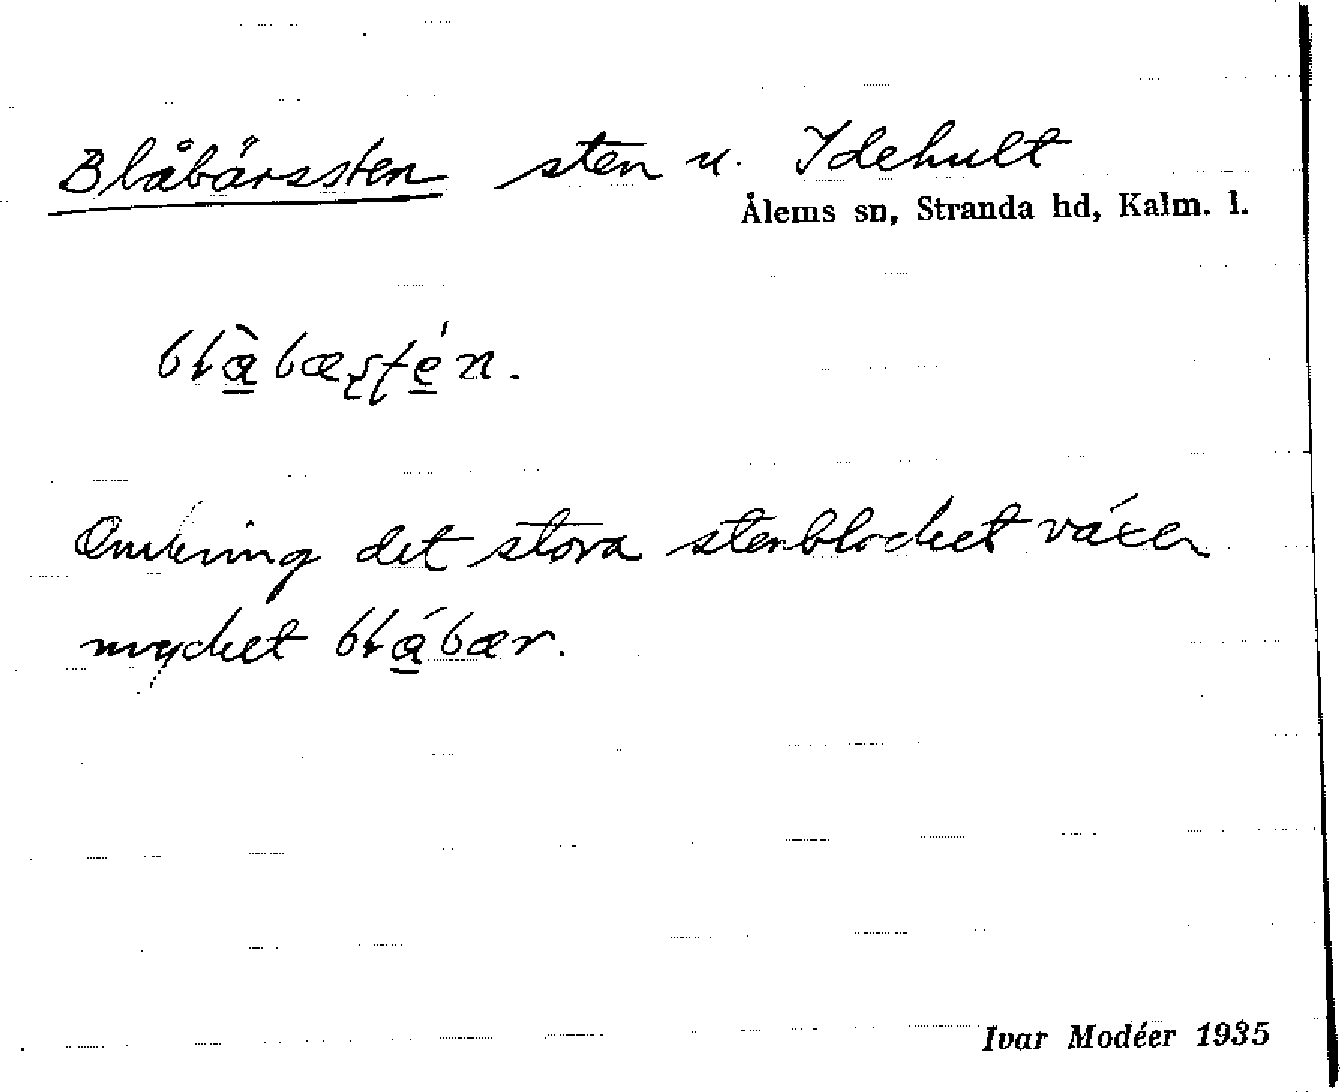 Blåbärssten sten u. Idehult
Ålems sn, Stranda hd, Kalm. l.
Omkring det stora stenblocket växer
mycket blåbær.
Ivar Modéer 1935